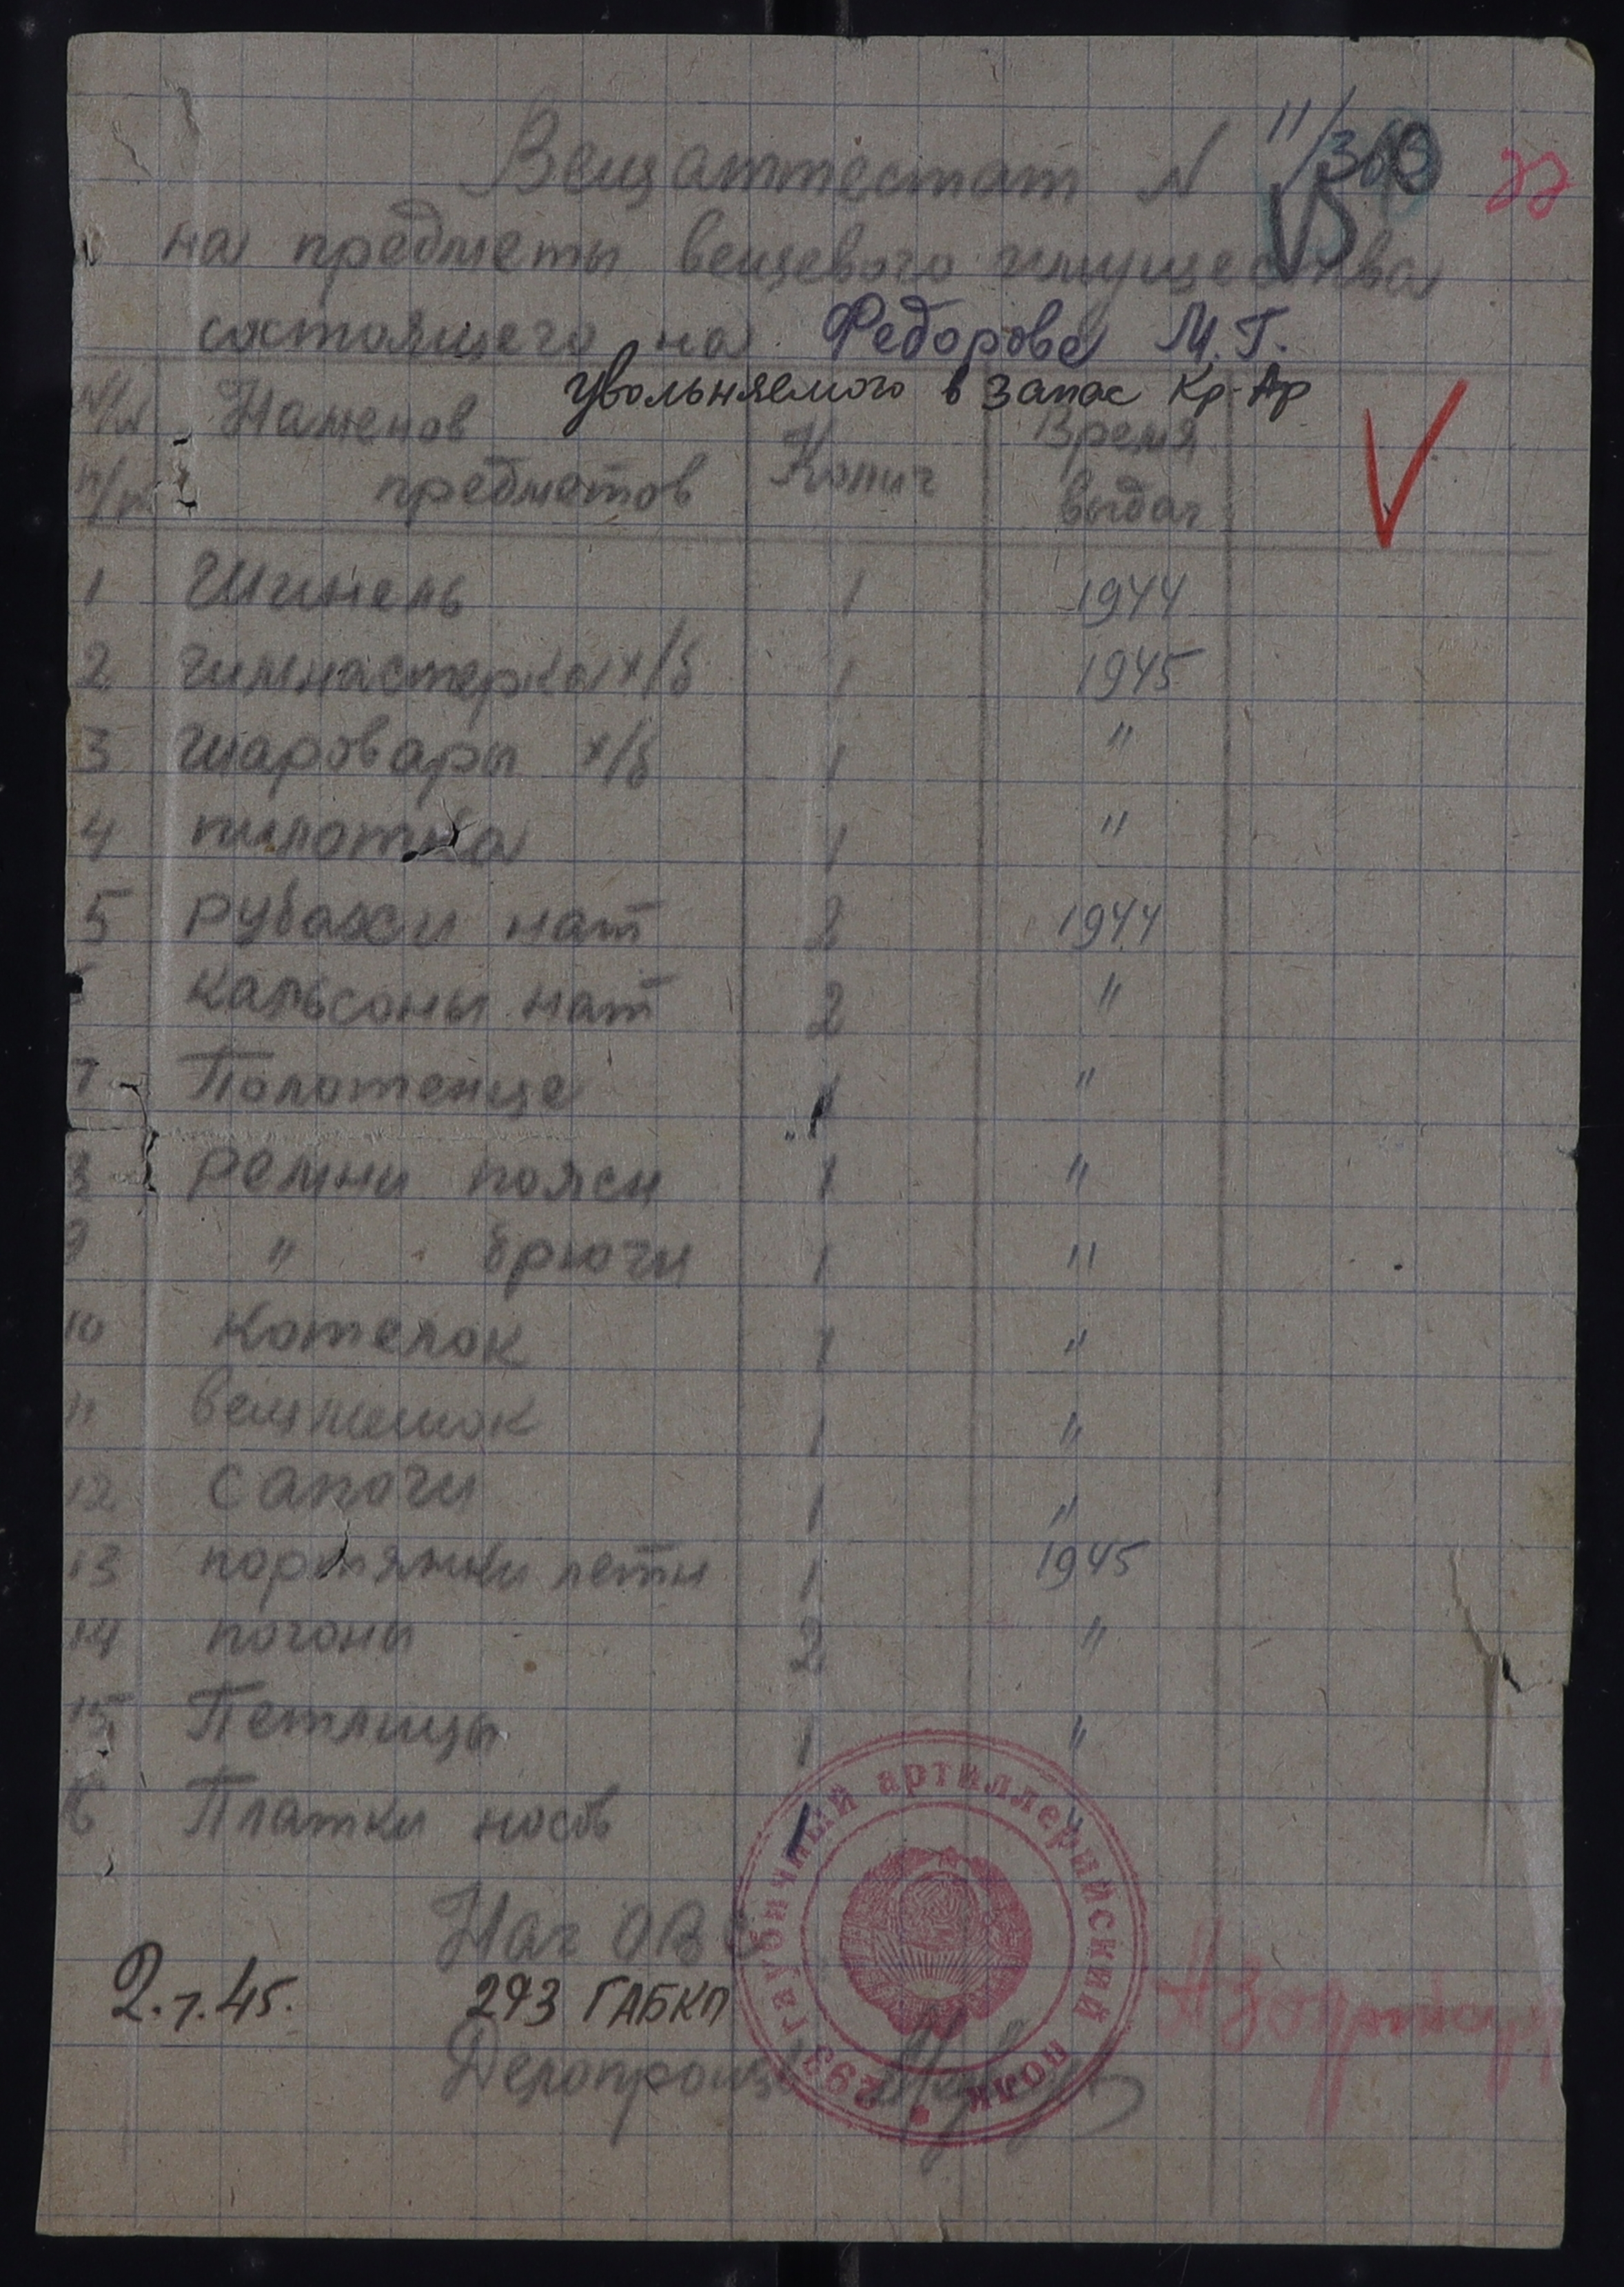 Вещаттестат N
на предметы вещевого имущества
состоящего на Федорова М.Г.
увольняемого в запас Кр-Ар
N/N п/п Наменов предметов Колич Время выдач
1 Шинель 1 1944
2 гимнастерка х/б 1 1945
3 шаровары х/б 1 "
4 пилотка 1 "
5 рубахи нат 2 1944
кальсоны нат 2 "
7 Полотенце 1 "
8 ремни поясн 1 "
9 " брючн 1 "
10 Котелок 1 "
11 вещмешок 1 "
12 сапоги 1 "
13 портянки летн 1 1945
14 погоны 2 "
15 Петлицы 1 "
16 Платки носов 1 "
Нач ОВС
2.7.45. 293 ГАБКП
Делопроизв
293 гаубичный артиллерийский полк